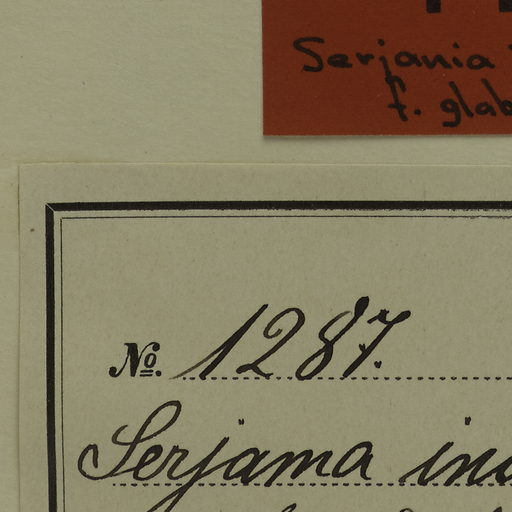 Serjania
f. glab
No. 1287.
Serjania ina